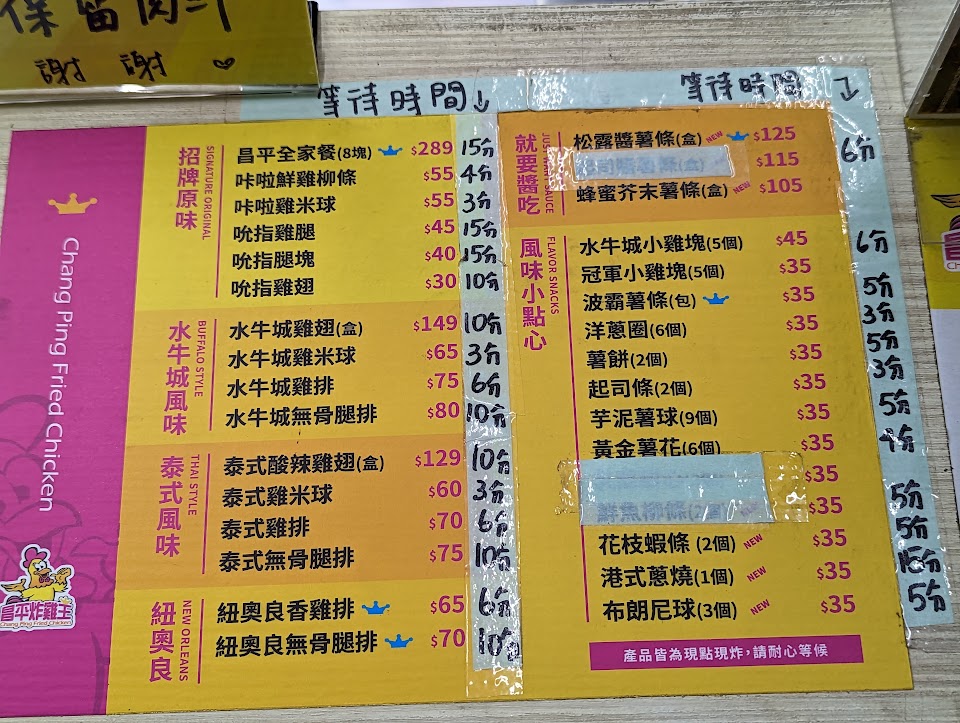 保留肉汁
謝 謝 ♥
等待時間↓
等待時間 ↓
Chang Ping Fried Chicken
昌平炸雞王
Chang Ping Fried Chicken
招牌原味
SIGNATURE ORIGINAL
昌平全家餐(8塊) $289 15分
咔啦鮮雞柳條 $55 4分
咔啦雞米球 $55 3分
吮指雞腿 $45 15分
吮指腿塊 $40 15分
吮指雞翅 $30 10分
水牛城風味
BUFFALO STYLE
水牛城雞翅(盒) $149 10分
水牛城雞米球 $65 3分
水牛城雞排 $75 6分
水牛城無骨腿排 $80 10分
泰式風味
THAI STYLE
泰式酸辣雞翅(盒) $129 10分
泰式雞米球 $60 3分
泰式雞排 $70 6分
泰式無骨腿排 $75 10分
紐奧良
NEW ORLEANS
紐奧良香雞排 $65 6分
紐奧良無骨腿排 $70 10分
就要醬吃
JUST WANT SAUCE
松露醬薯條(盒) NEW $125 6分
$115
蜂蜜芥末薯條(盒) NEW $105
風味小點心
FLAVOR SNACKS
水牛城小雞塊(5個) $45 6分
冠軍小雞塊(5個) $35
波霸薯條(包) $35 5分
洋蔥圈(6個) $35 3分
薯餅(2個) $35 5分
起司條(2個) $35 3分
芋泥薯球(9個) $35 5分
黃金薯花(6個) $35 4分
$35
鮮魚柳條(2個) $35 5分
花枝蝦條 (2個) NEW $35 5分
港式蔥燒(1個) NEW $35 15分
布朗尼球(3個) NEW $35 5分
產品皆為現點現炸，請耐心等候